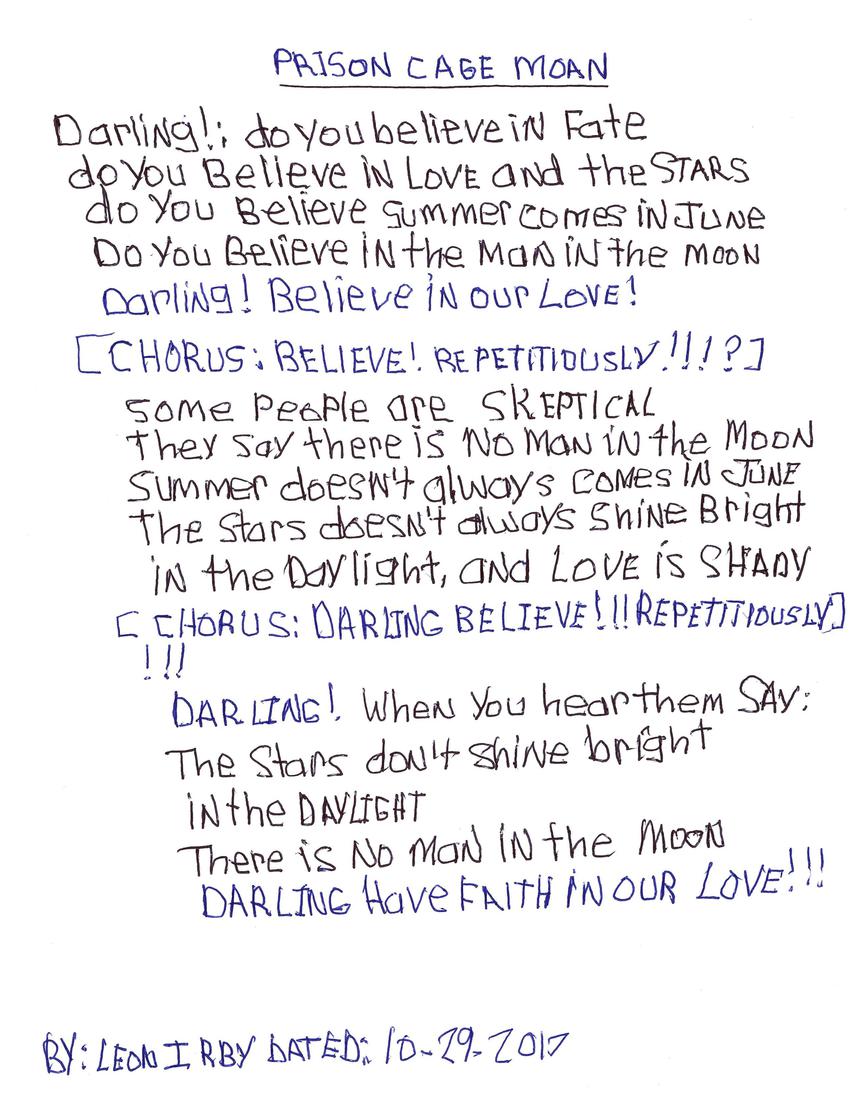 PRISON CAGE MOAN
Darling!; do you believe iN Fate
do you Believe iN LOVE and the STARS
do You Believe summer comes iN JUNE
Do You Believe iN the MaN iN the MOON
Darling! Believe iN our LOVE!
[CHORUS: BELIEVE! REPETITIOUSLY!!!?]
some People are SKEPTICAL
they say there is No Man iN the MOON
Summer doesN't always COMES IN JUNE
the Stars doesN't always ShiNe Bright
iN the Daylight, aNd LOVE is SHADY
[CHORUS: DARLING BELIEVE!!!REPETITIOUSLY]
!!!
DARLING! WheN You hear them SAY:
The Stars doN't shiNe bright
iN the DAYLIGHT
There is No MaN IN the MOON
DARLING Have FAITH iN OUR LOVE!!!
BY: LEON IRBY DATED: 10-29-2017